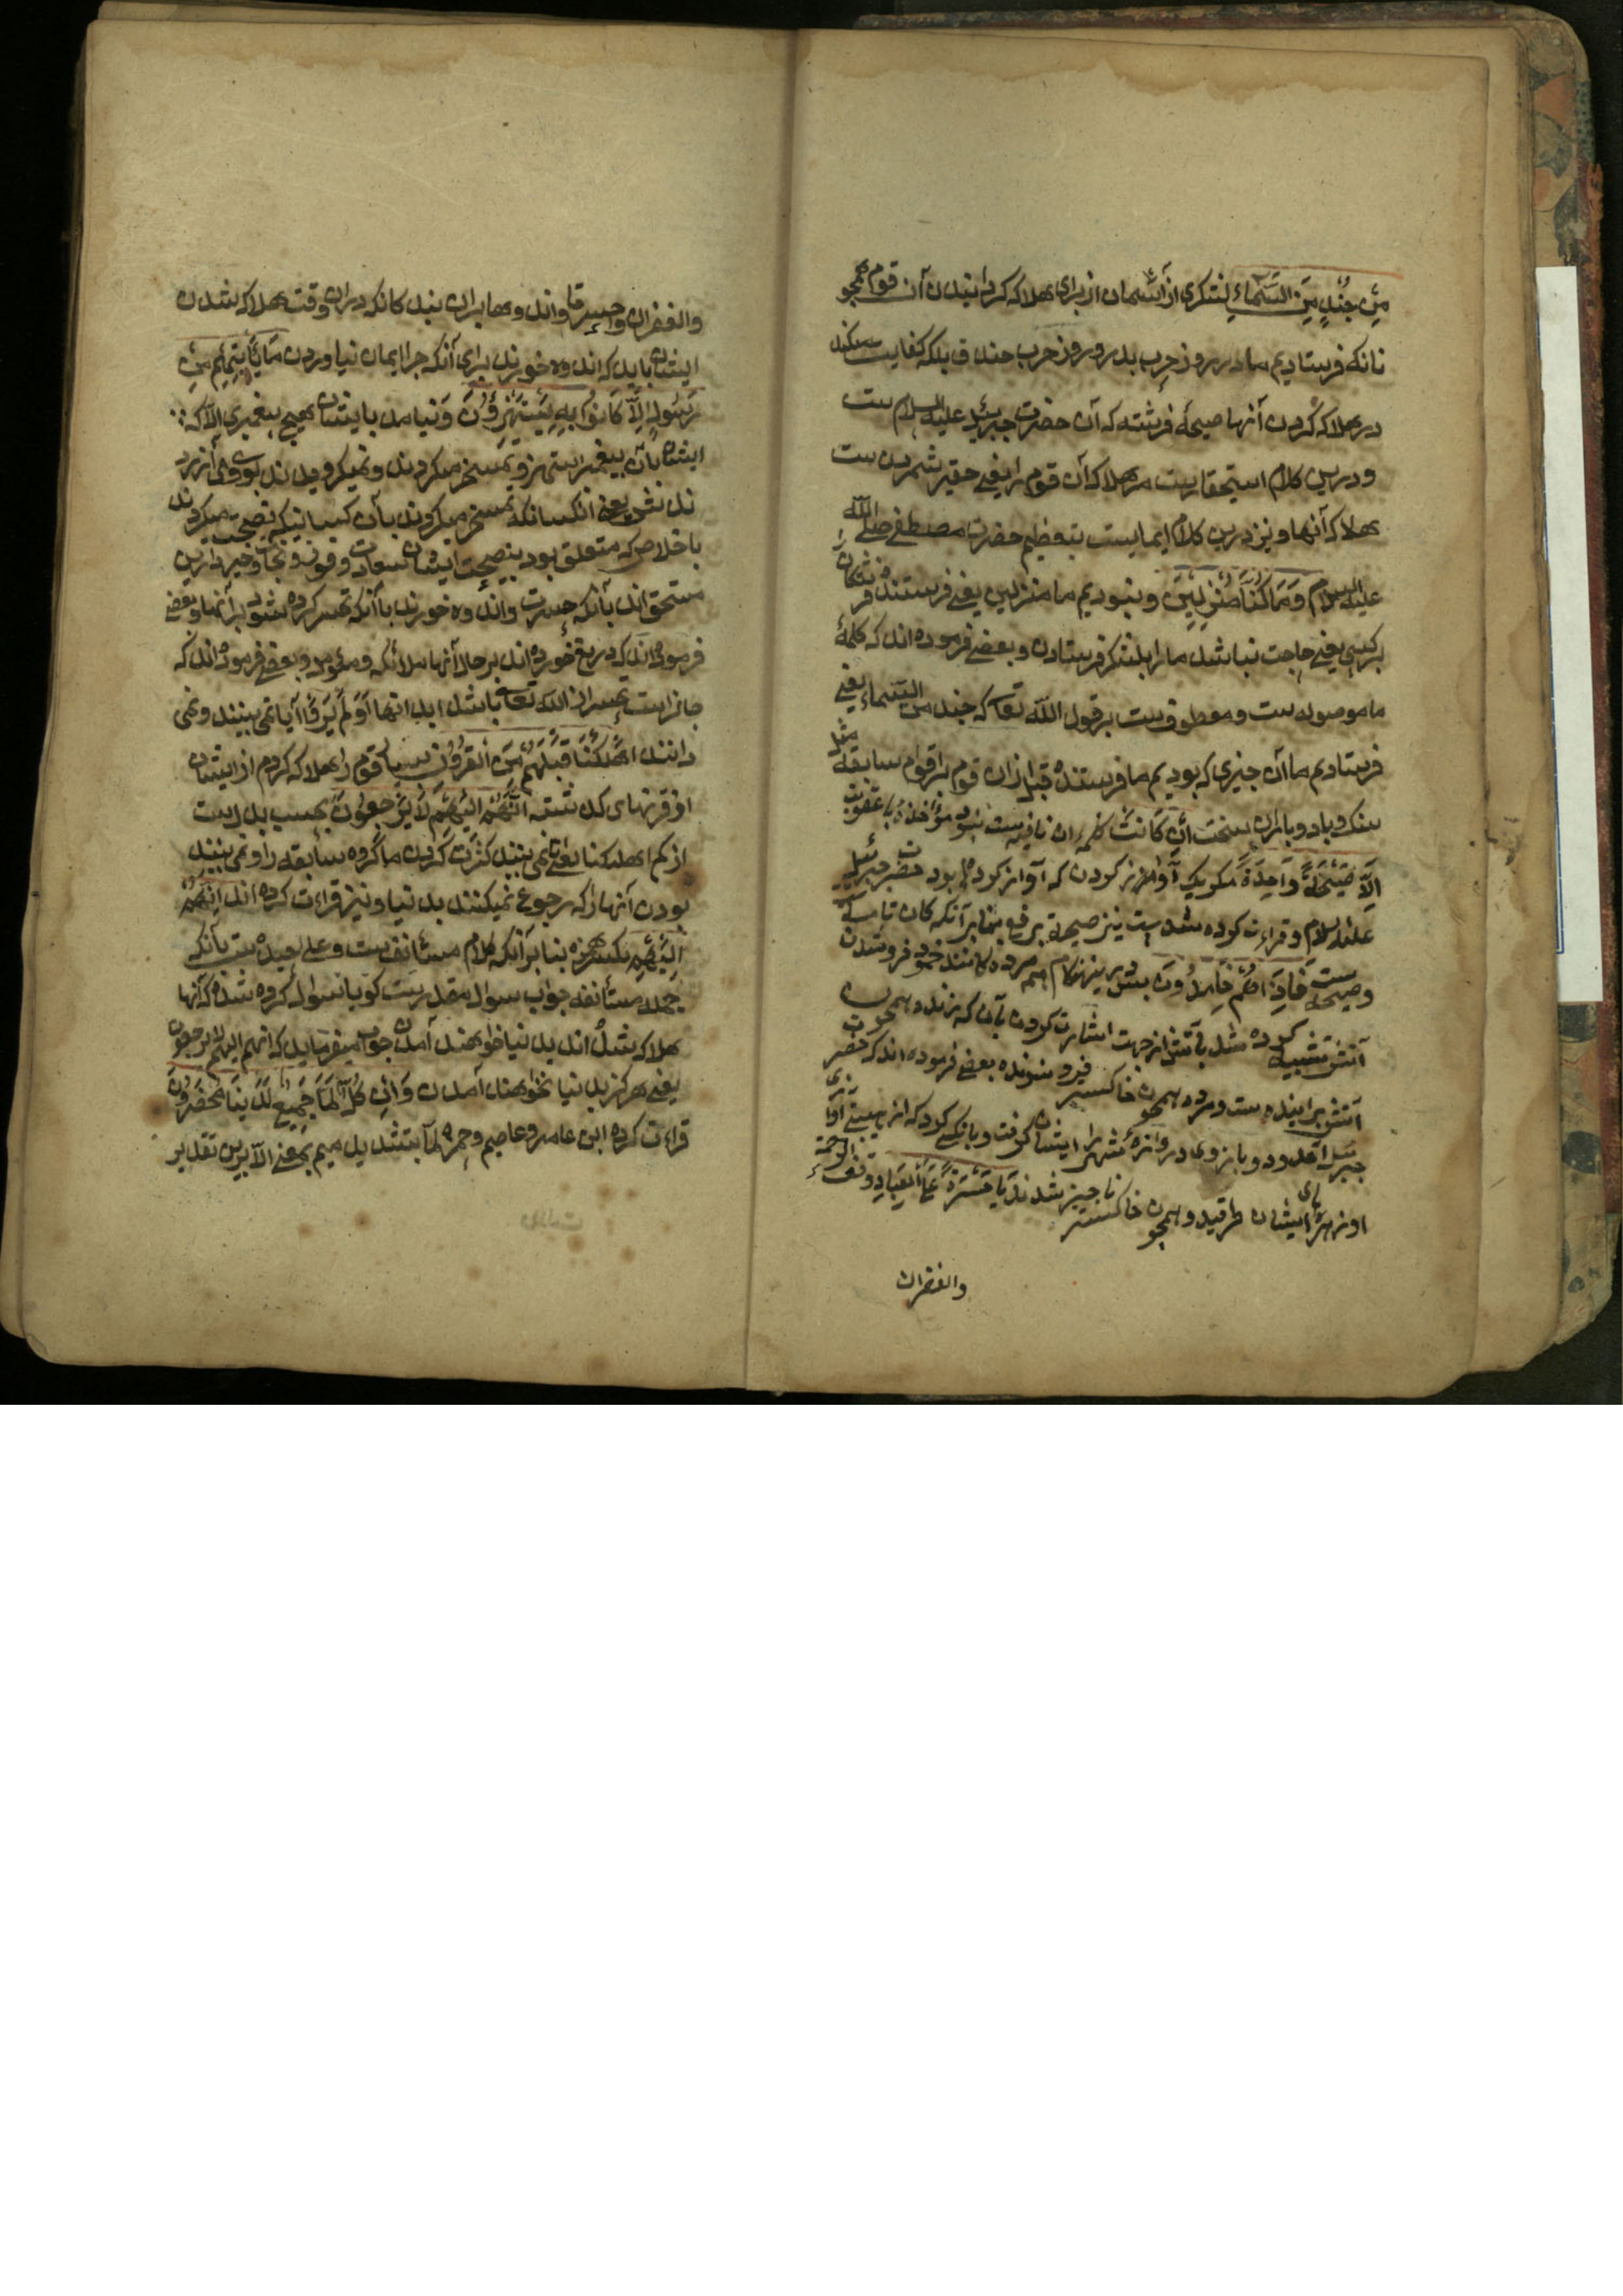 مِنْ جُنْدٍ مِنَ السَّمَاءِ لشکری از آسمان از برای هلاک کردانیدن آن قوم همجو
نانکه فرستادیم ما در روز حرب بدر و روز حرب خندق بلکه کفایت میکند
در هلاک کردن آنها صیحهٔ فرشته که آن حضرت جبریل علیه السلام ست
و درین کلام استحقارست مر هلاک آن قوم را یعنی حقیر شمردن ست
هلاک آنها و نیز درین کلام ایمایست بتعظیم حضرت مصطفی صلی الله
علیه السلام وَمَا كُنَّا مُنْزِلِينَ و نبودیم ما منزلین یعنی فرستنده فرشتکان را
بر کسی یعنی حاجت نباشد ما را بلشکر فرستادن و بعضی فرموده اند که کلمهٔ
ما موصوله ست و معطوف ست بر قول الله تعا که جند من السماء یعنی
فرستادیم ما آن جیزی که بودیم ما فرستنده قبل ازان قوم بر اقوام سابقه مثل
سنک و باد و باران سخت اِنْ كَانَتْ کلمه ان نافیه ست نبود مؤاخذه یا عقوبت
اِلَّا صَيْحَةً وَاحِدَةً مکر یک آواز کردن که آواز کرده بود حضرت جبرئیل
علیه السلام و قراءت کرده شده ست نیز صیحة برفع بنا برآنکه کان تامه
وصیحه ست فَاِذَا هُمْ خَامِدُونَ بس درین هنکام هم مرده کانند خمود فرو شدن
آتش تشبیه کرده شد بآتش از جهت اشارت کردن بآن که زنده همجون
آتش برآینده ست و مرده همجون خاکستر فیرو شونده بعضی فرموده اند که حضرت
جبرئیل آمد و دو بازوی دروازهٔ شهر ایشان کرفت و بانکی کرد که از هیبت آواز
او زهرهٔ ایشان طرقید و همجون خاکستر ناجیز شدند يَا حَسْرَةً عَلَى الْعِبَادِ
والغفران
والغفران واحسرتا و اندوها بران بندکانکه دران وقت هلاک شدن
ایشان باید که اندوه خورند برای آنکه جرا ایمان نیاوردن مَا يَأْتِيهِمْ مِنْ
رَسُولٍ اِلَّا كَانُوا بِهِ يَسْتَهْزِؤُنَ و نیامد بایشان هیج بیغمبری الا که
ایشان بآن بیغمبر استهزا و تمسخر میکردند و نمیکرویدند بوی
یعنی آنکسانکه تمسخر میکردند بآن کسانیکه نصیحت میکردند
باخلاص که متعلق بود بنصیحت ایشان سعادت و فوز و نجات و خیر دارین
مستحق اند بآنکه حسرت و اندوه خورند یا آنکه تحسر کرده شود بر آنها و بعضی
فرموده اند که دریغ خورده اند بر حال آنها ملائکه و مؤمن و بعضی فرموده اند که
جائز است تحسر از الله تعا باشد اَوَلَمْ يَرَوْا آیا نمی بینند و نمی
دانند اَهْلَكْنَا قَبْلَهُمْ مِنَ الْقُرُونِ بسیا قوم را هلاک کردم از ایشان
از قرنهای کذشته اَنَّهُمْ اِلَيْهِمْ لَا يَرْجِعُونَ بحسب بدل ست
از کم اهلکنا یعنی نمی بینند کثرت کردن ما کروه سابقه را و نمی بینند
بودن آنها را که رجوع نمیکنند بدنیا و نیز قراءت کرده اند اِنَّهُمْ
اِلَيْهِمْ بکسر همزه بنا برآنکه کلام مستأنف ست و علیحیده ست بآنکه
جمله مستأنفه جواب سوال مقدرست کویا سوال کرده شده که آنها
هلاک شده اند بدنیا خواهند آمدن جواب میفرماید که انهم الیهم لا یرجعون
یعنی هرکز بدنیا نخواهند آمدن وَاِنْ كُلٌّ لَمَّا جَمِيعٌ لَدَيْنَا مُحْضَرُونَ
قراءت کرده ابن عامر و عاصم و حمزه لمّا بتشدید میم بمعنی الا برین تقدیر